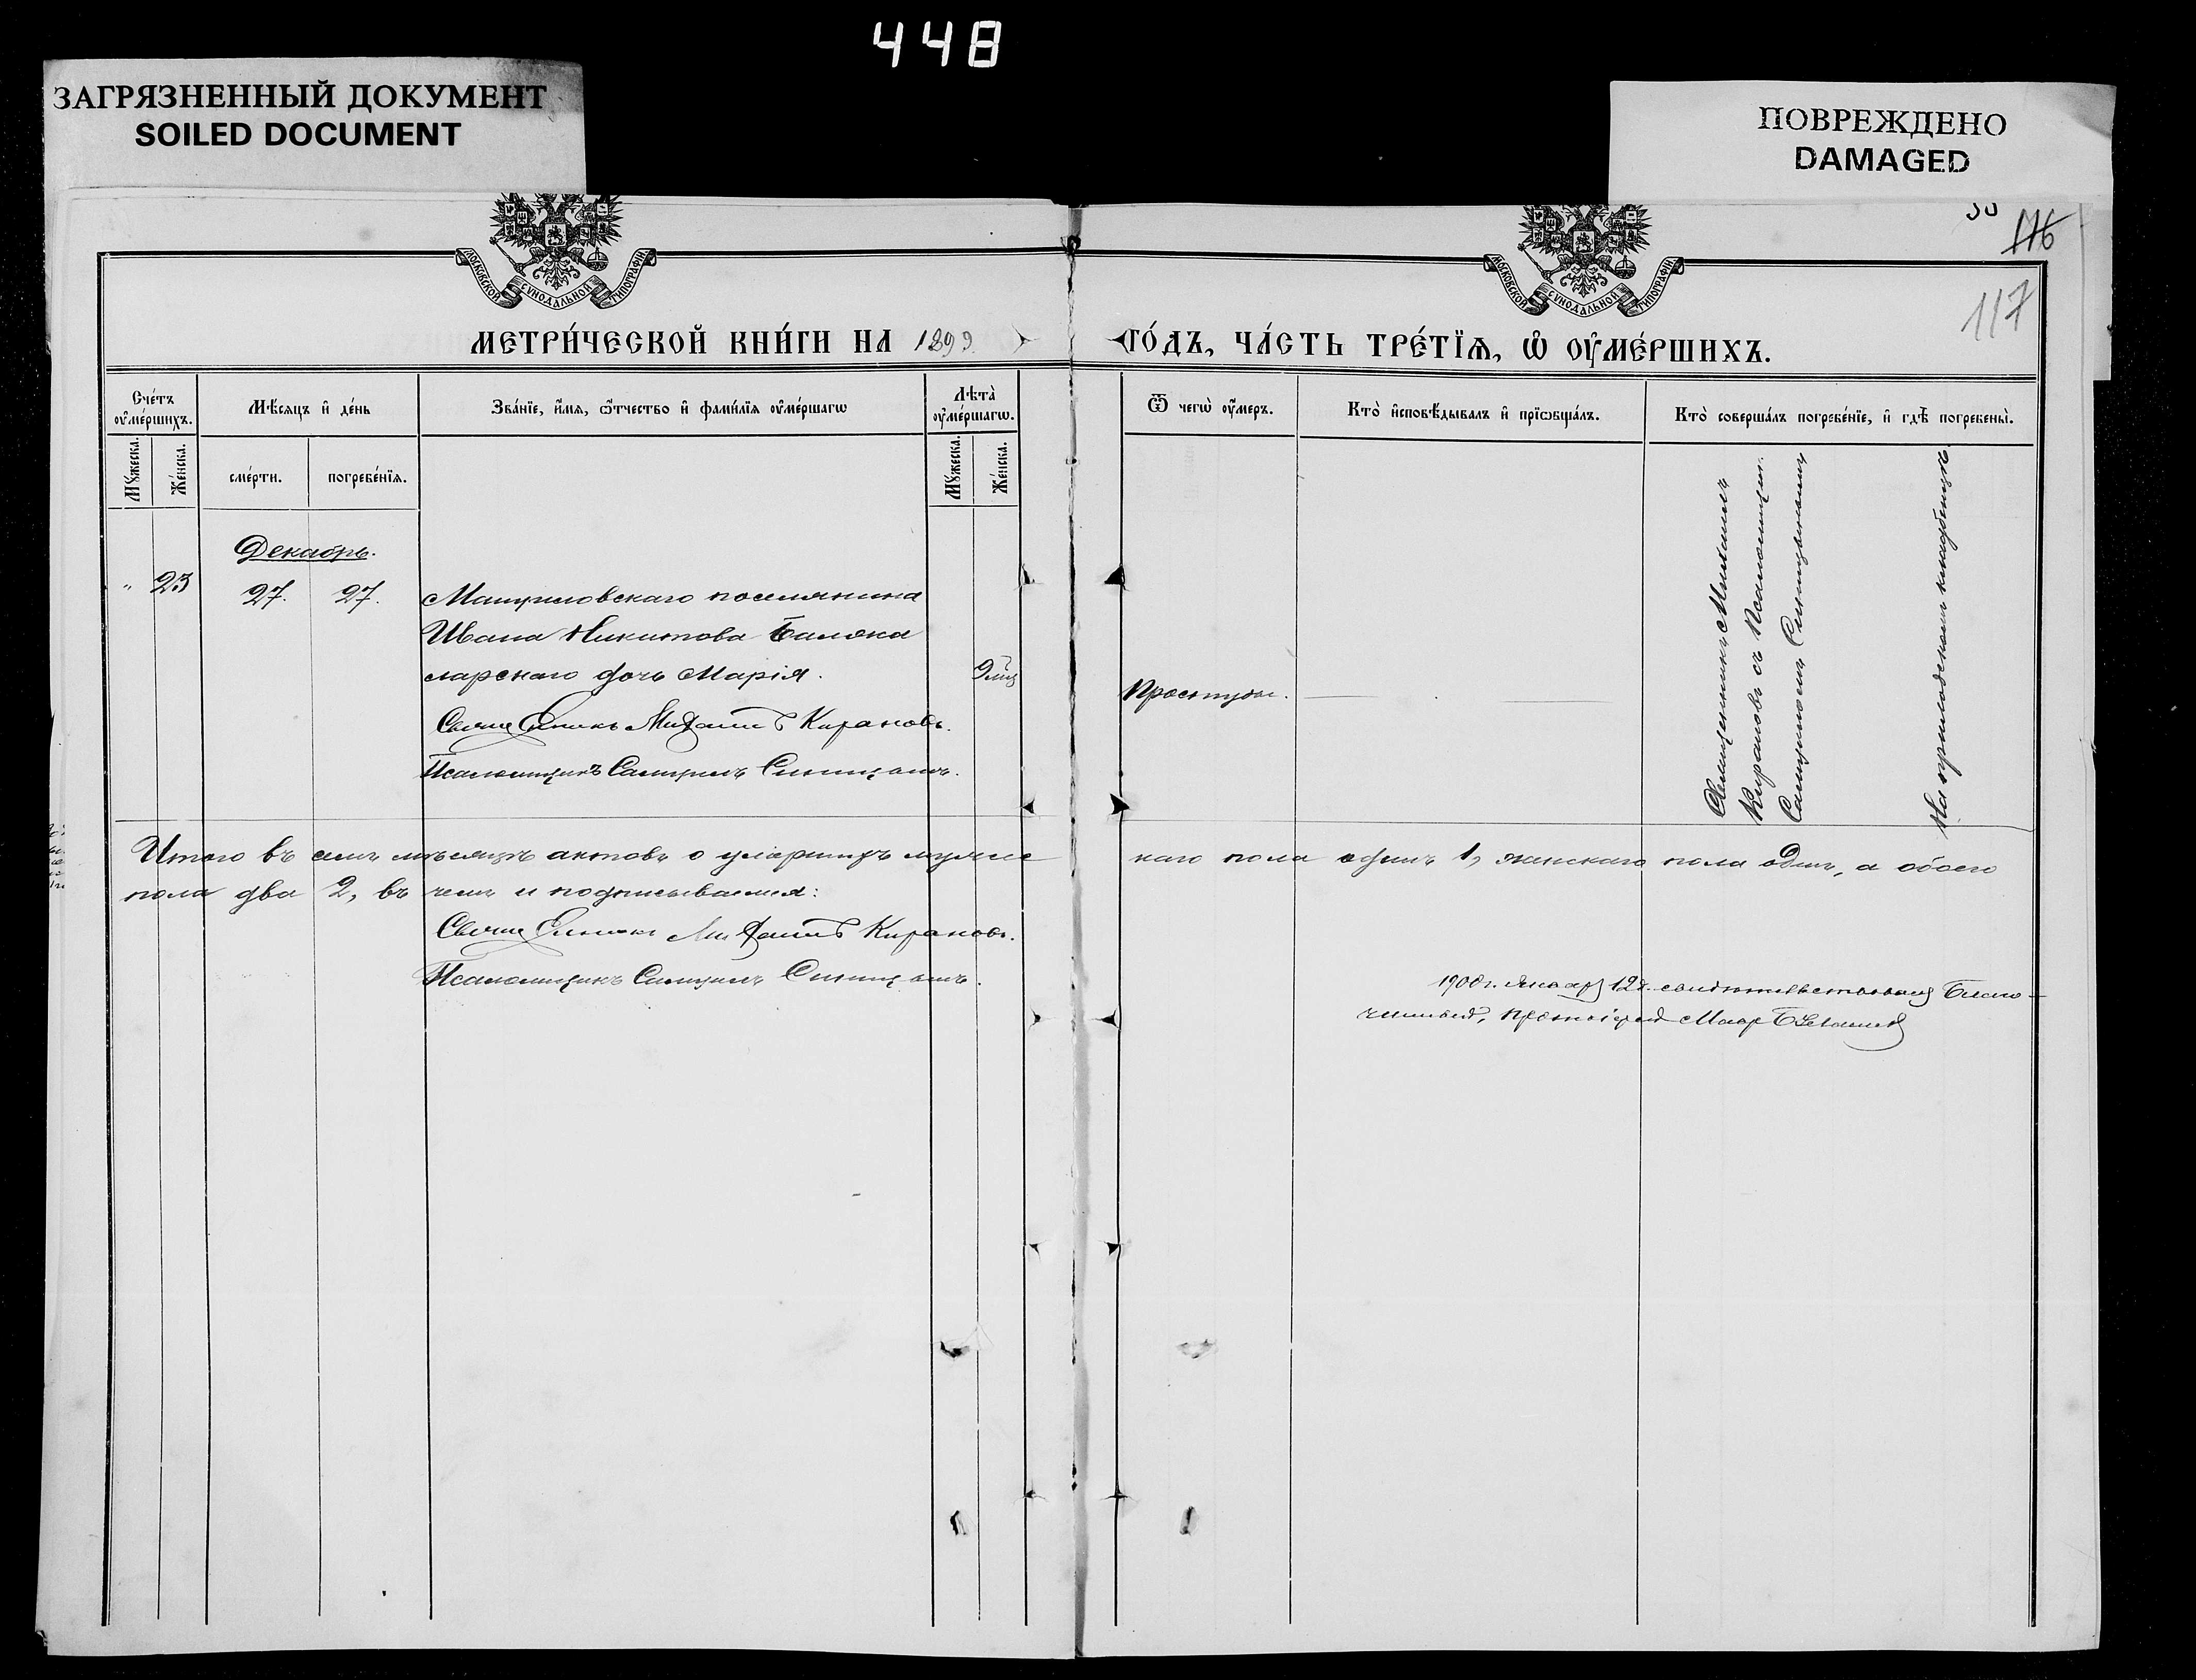 448
ЗАГРЯЗНЕННЫЙ ДОКУМЕНТ
SOILED DOCUMENT
ПОВРЕЖДЕНО
DAMAGED
116
117
МОСКОВСКОЙ СѴНОДАЛЬНОЙ ТИПОГРАФІИ
МОСКОВСКОЙ СѴНОДАЛЬНОЙ ТИПОГРАФІИ
МЕТРИ́ЧЕСКОЙ КНИ́ГИ НА 1899
ГО́ДЪ, ЧА́СТЬ ТРЕ́ТЇѦ, Ѡ ОУ҆МЕ́РШИХЪ.
Сче́тъ оу҆ме́ршихъ.
Мꙋ́жеска.
Же́нска.
Мѣ́сѧцъ и҆ де́нь
сме́рти.
погребе́нїѧ.
Зва́нїе, и҆́мѧ, ѻ҆́тчество и҆ фами́лїѧ оу҆ме́ршагѡ
Лѣ́та оу҆ме́ршагѡ.
Мꙋ́жеска.
Же́нска.
Ѿ чегѡ̀ оу҆́меръ.
Кто̀ и҆сповѣ́дывалъ и҆ прїѡбща́лъ.
Кто̀ соверша́лъ погребе́нїе, и҆ гдѣ̀ погребены̀.
Декабрь.
" 23 27. 27.
поселянина
Ивана Никитова
дочь Марія.
Священникъ Михаилъ Кирановъ.
Псаломщикъ Самуилъ
Простуды.
Священникъ Михаилъ
Кирановъ съ Псаломщикомъ
Самуиломъ
На приходскомъ кладбищѣ
Итого въ семъ мѣсяцѣ актовъ о умершихъ мужес
каго пола одинъ 1, женскаго пола одинъ, а обоего
пола два 2, въ чемъ и подписываемся:
Священникъ Михаилъ Кирановъ.
Псаломщикъ Самуилъ
1900 г. Января 12 д. свидѣтельствовалъ Благо-
чинный, Протоіерей